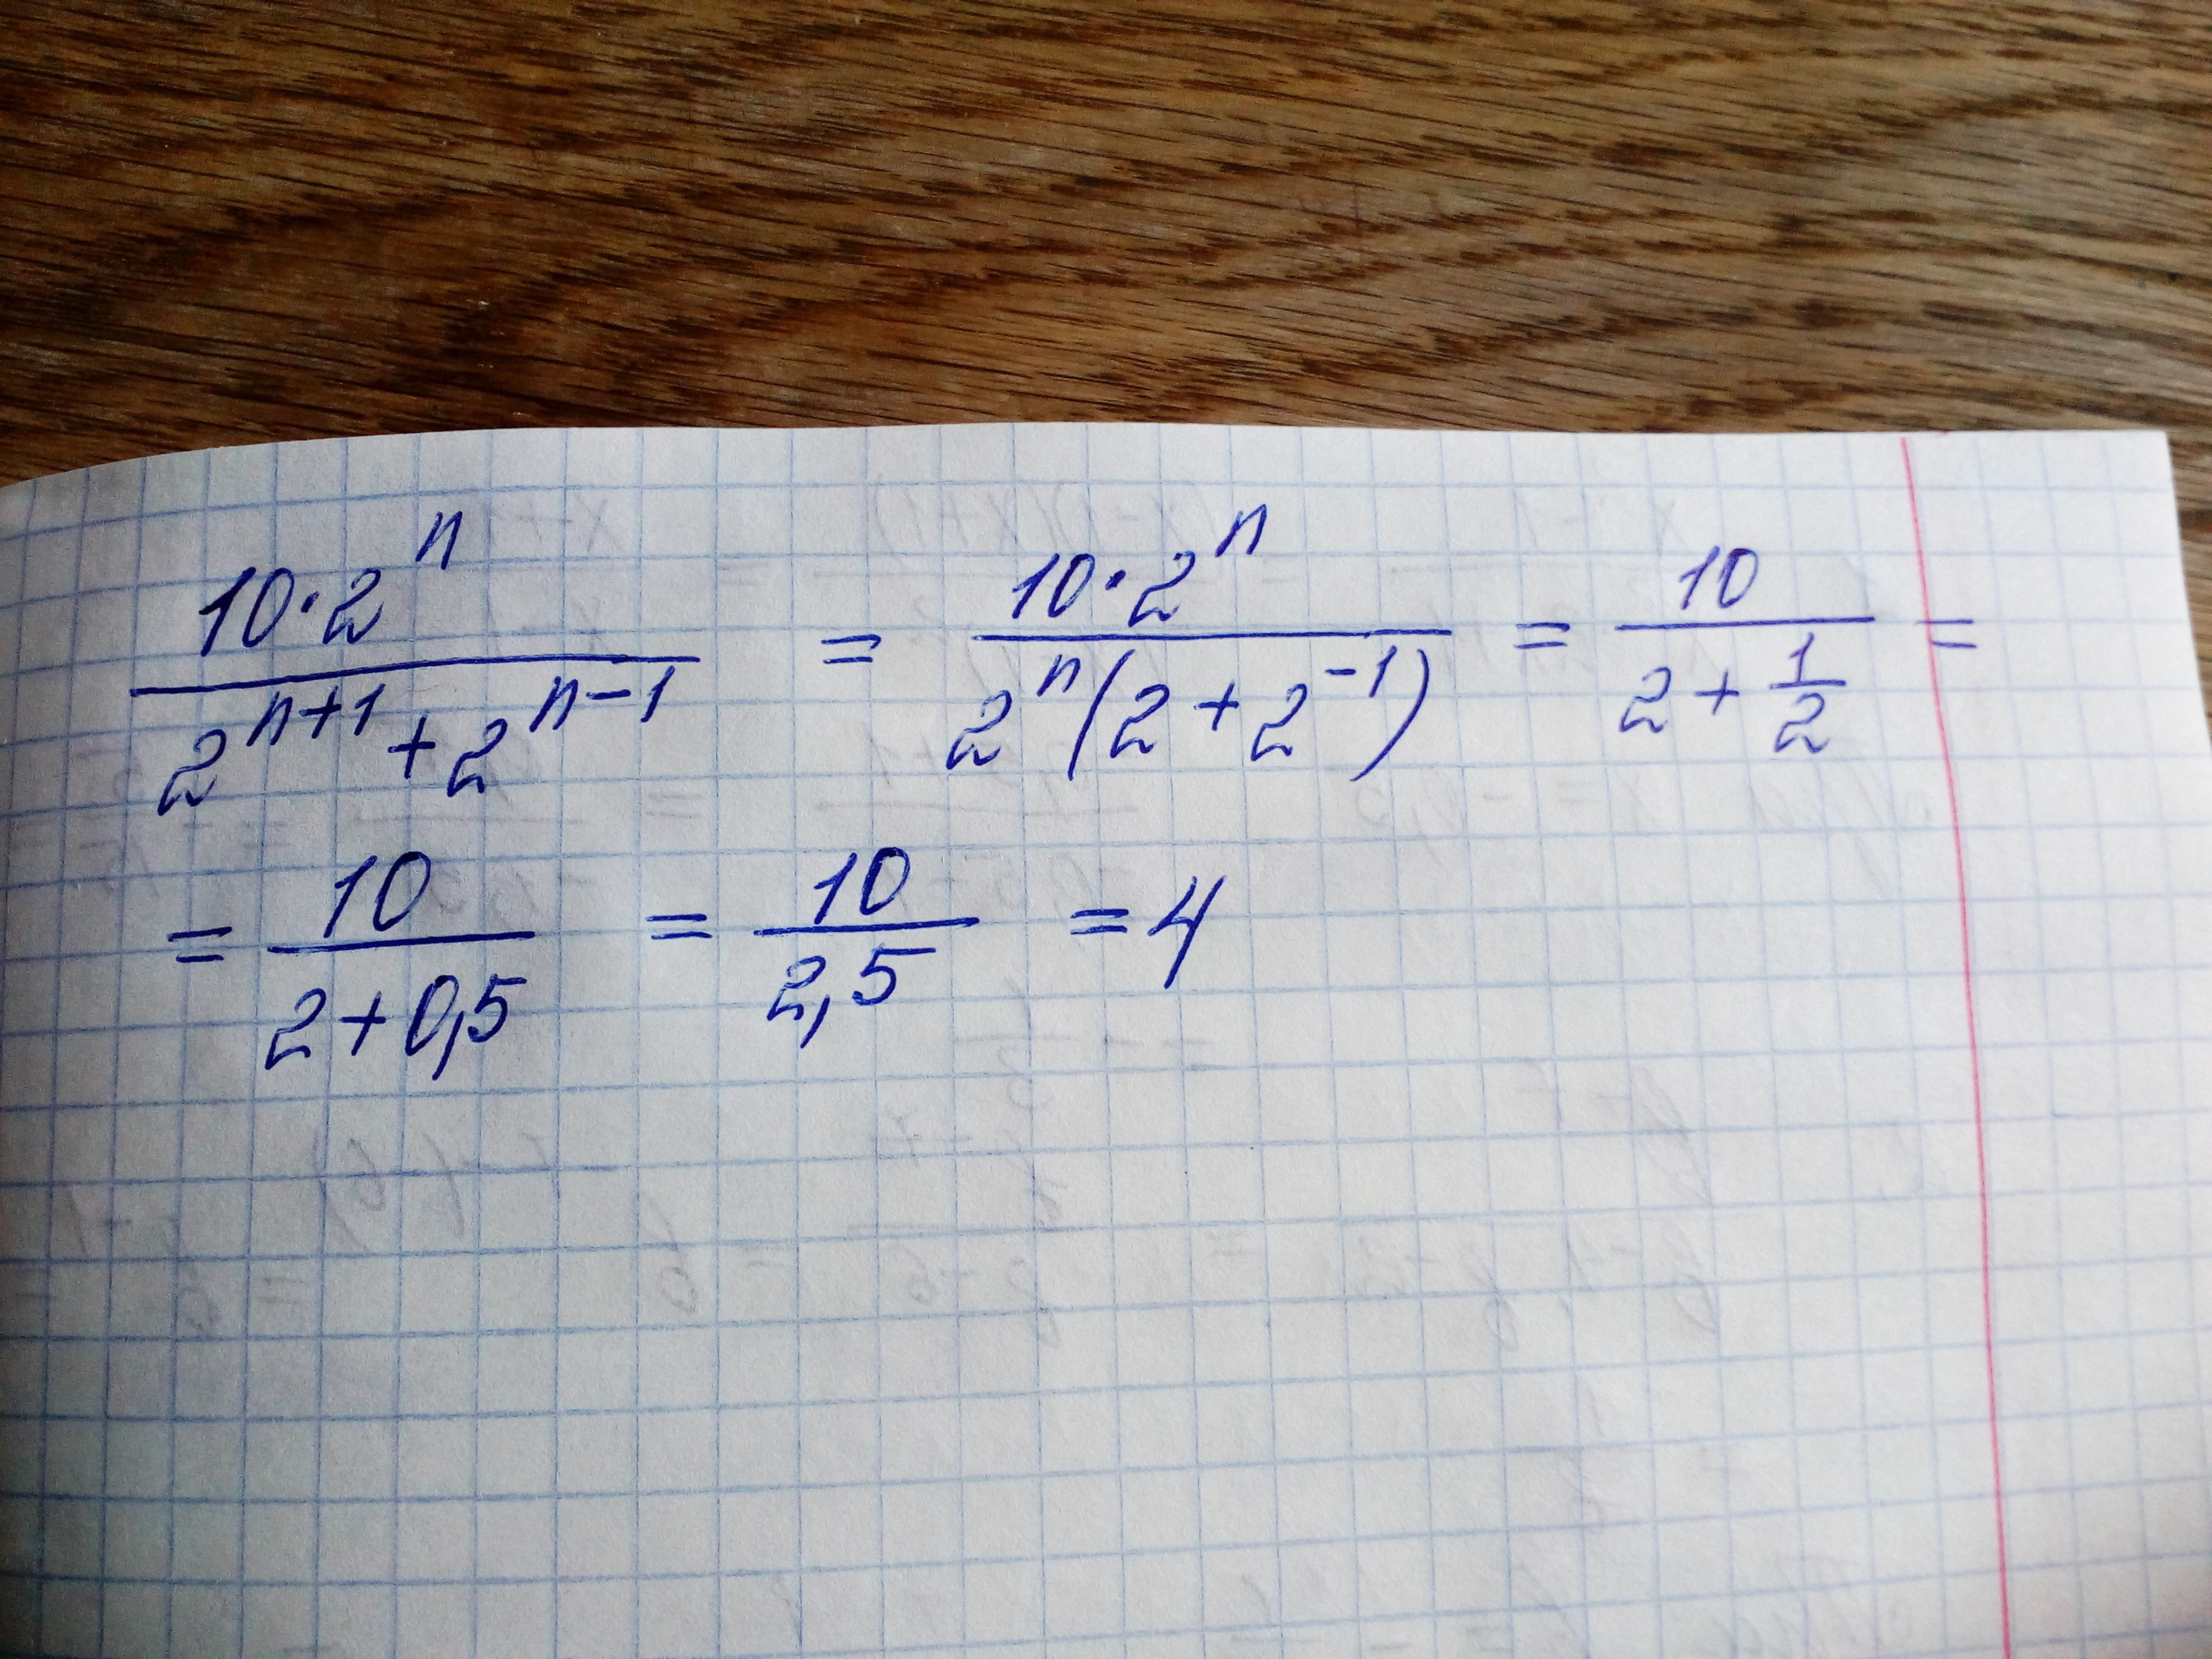 10·2ⁿ/(2ⁿ⁺¹+2ⁿ⁻¹) = 10·2ⁿ/(2ⁿ(2+2⁻¹)) = 10/(2+1/2) =
= 10/(2+0,5) = 10/2,5 = 4